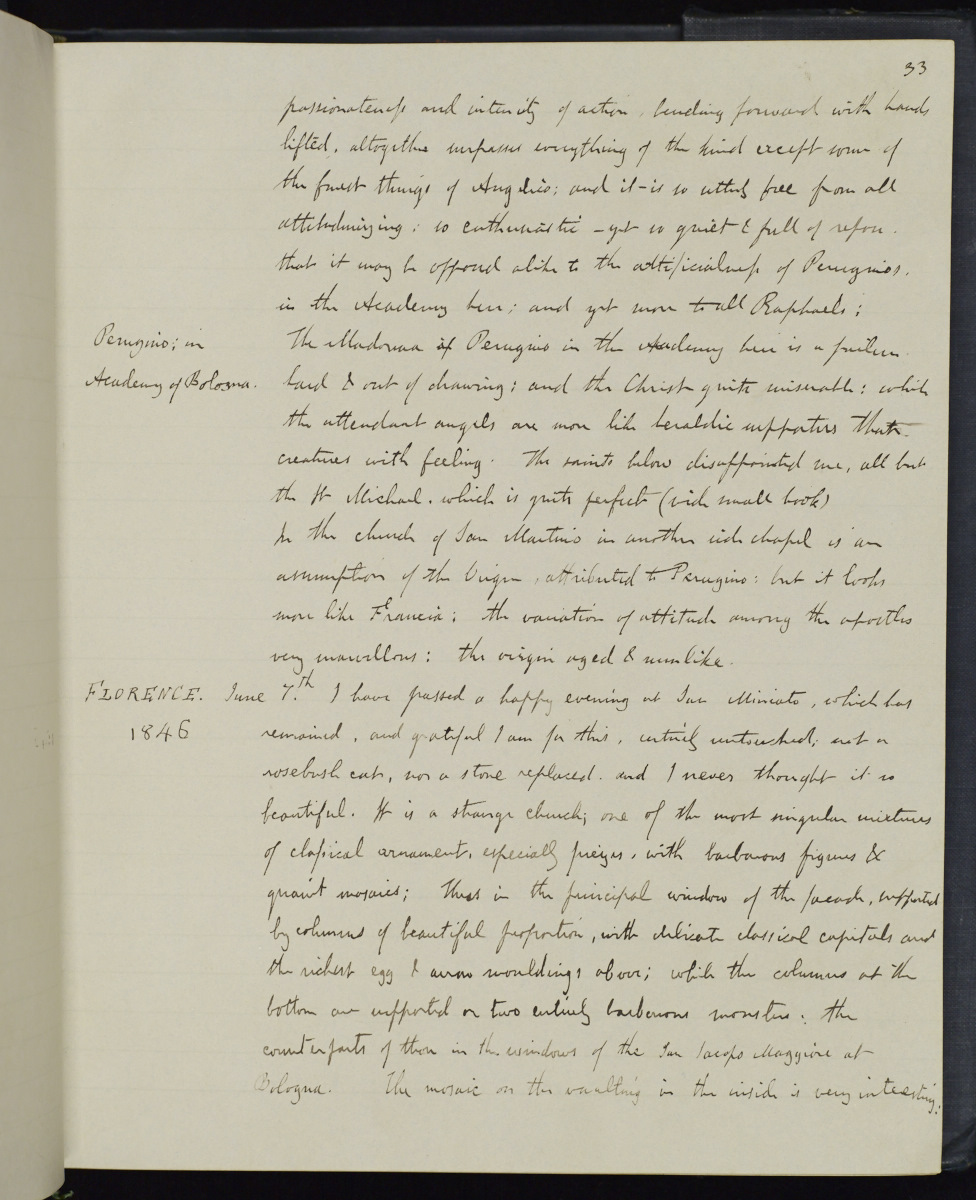 33
passionateness and intensity of action, bending forward with hands
lifted, altogether surpasses everything of the kind except some of
the finest things of Angelico; and it is so utterly free from all
attitudinizing; so enthusiastic - yet so quiet & full of repose.
that it may be opposed alike to the artificialness of Peruginos.
in the Academy here; and yet more to all Raphaels;
Perugino; in
Academy of Bologna.
The Madonna of Perugino in the Academy here is a failure.
hard & out of drawing; and the Christ quite miserable: while
the attendant angels are more like heraldic supporters than
creatures with feeling. The saints below disappointed me, all but
the St Michael. which is quite perfect (vide small book)
In the church of San Martino in another side chapel is an
assumption of the Virgin, attributed to Perugino: but it looks
more like Francia; the variation of attitude among the apostles
very marvellous: the virgin aged & sunlike.
FLORENCE. June 7.th I have passed a happy evening at San Miniato, which has
1846
remained, and grateful I am for this, entirely untouched; not a
rosebush cut, nor a stone replaced. and I never thought it so
beautiful. It is a strange church; one of the most singular mixtures
of classical ornament, especially friezes, with barbarous figures &
quaint mosaics; thus in the principal window of the facade, supported
by columns of beautiful proportion, with delicate classical capitals and
the richest egg & arrow mouldings above; while the columns at the
bottom are supported on two entirely barbarous monsters: the
counterparts of those in the windows of the San Jacopo Maggiore at
Bologna. The mosaic on the vaulting in the inside is very interesting: